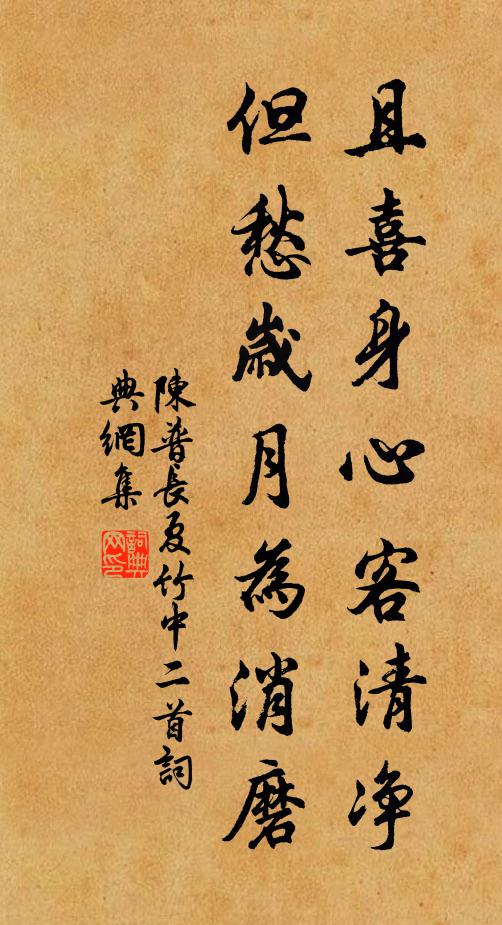 且喜身心客清净
但愁歲月為消磨
陳普長夏竹中二首詞
典網集
詞典网印